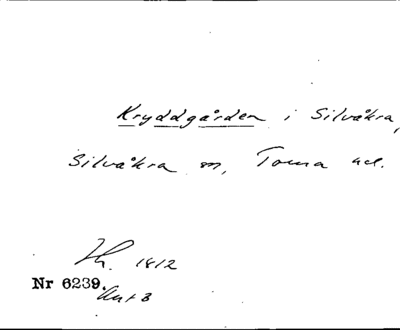 Kryddgården i Silvåkra,
Silvåkra sn, Torna hd.
Lh. 1812
Nr 6239.
Ant 3